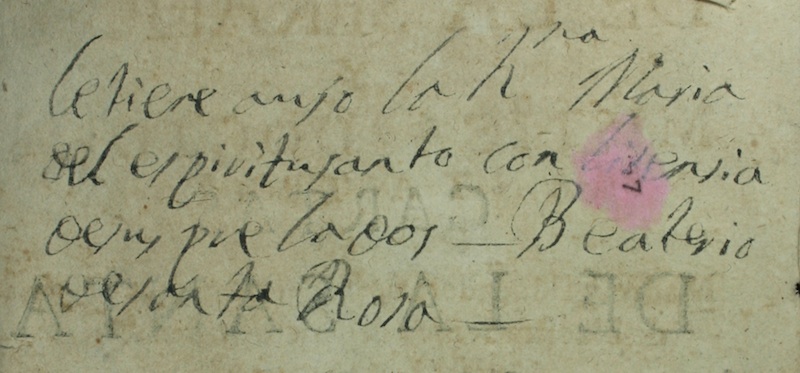 letiene auso la hna Maria
del espiritusanto con lisensia
desus preladoos — Beaterio
desanta Rosa —